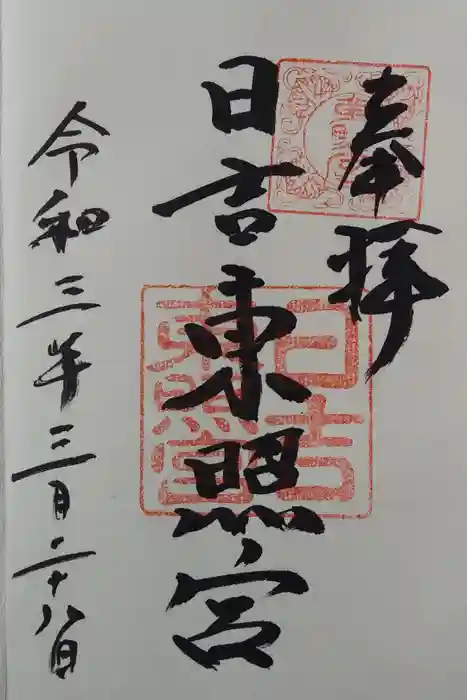 奉拝
日吉東照宮
令和三年三月二十八日
日吉
東照宮